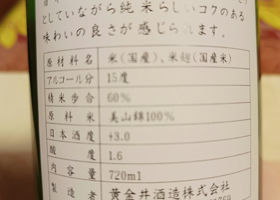 としていながら純米らしいコクのある
味わいの良さが感じられます。
原材料名 米(国産)、米麹(国産米)
アルコール分 15度
精米歩合 60%
原料米 美山錦100%
日本酒度 +3.0
酸度 1.6
内容量 720ml
製造者 黄金井酒造株式会社